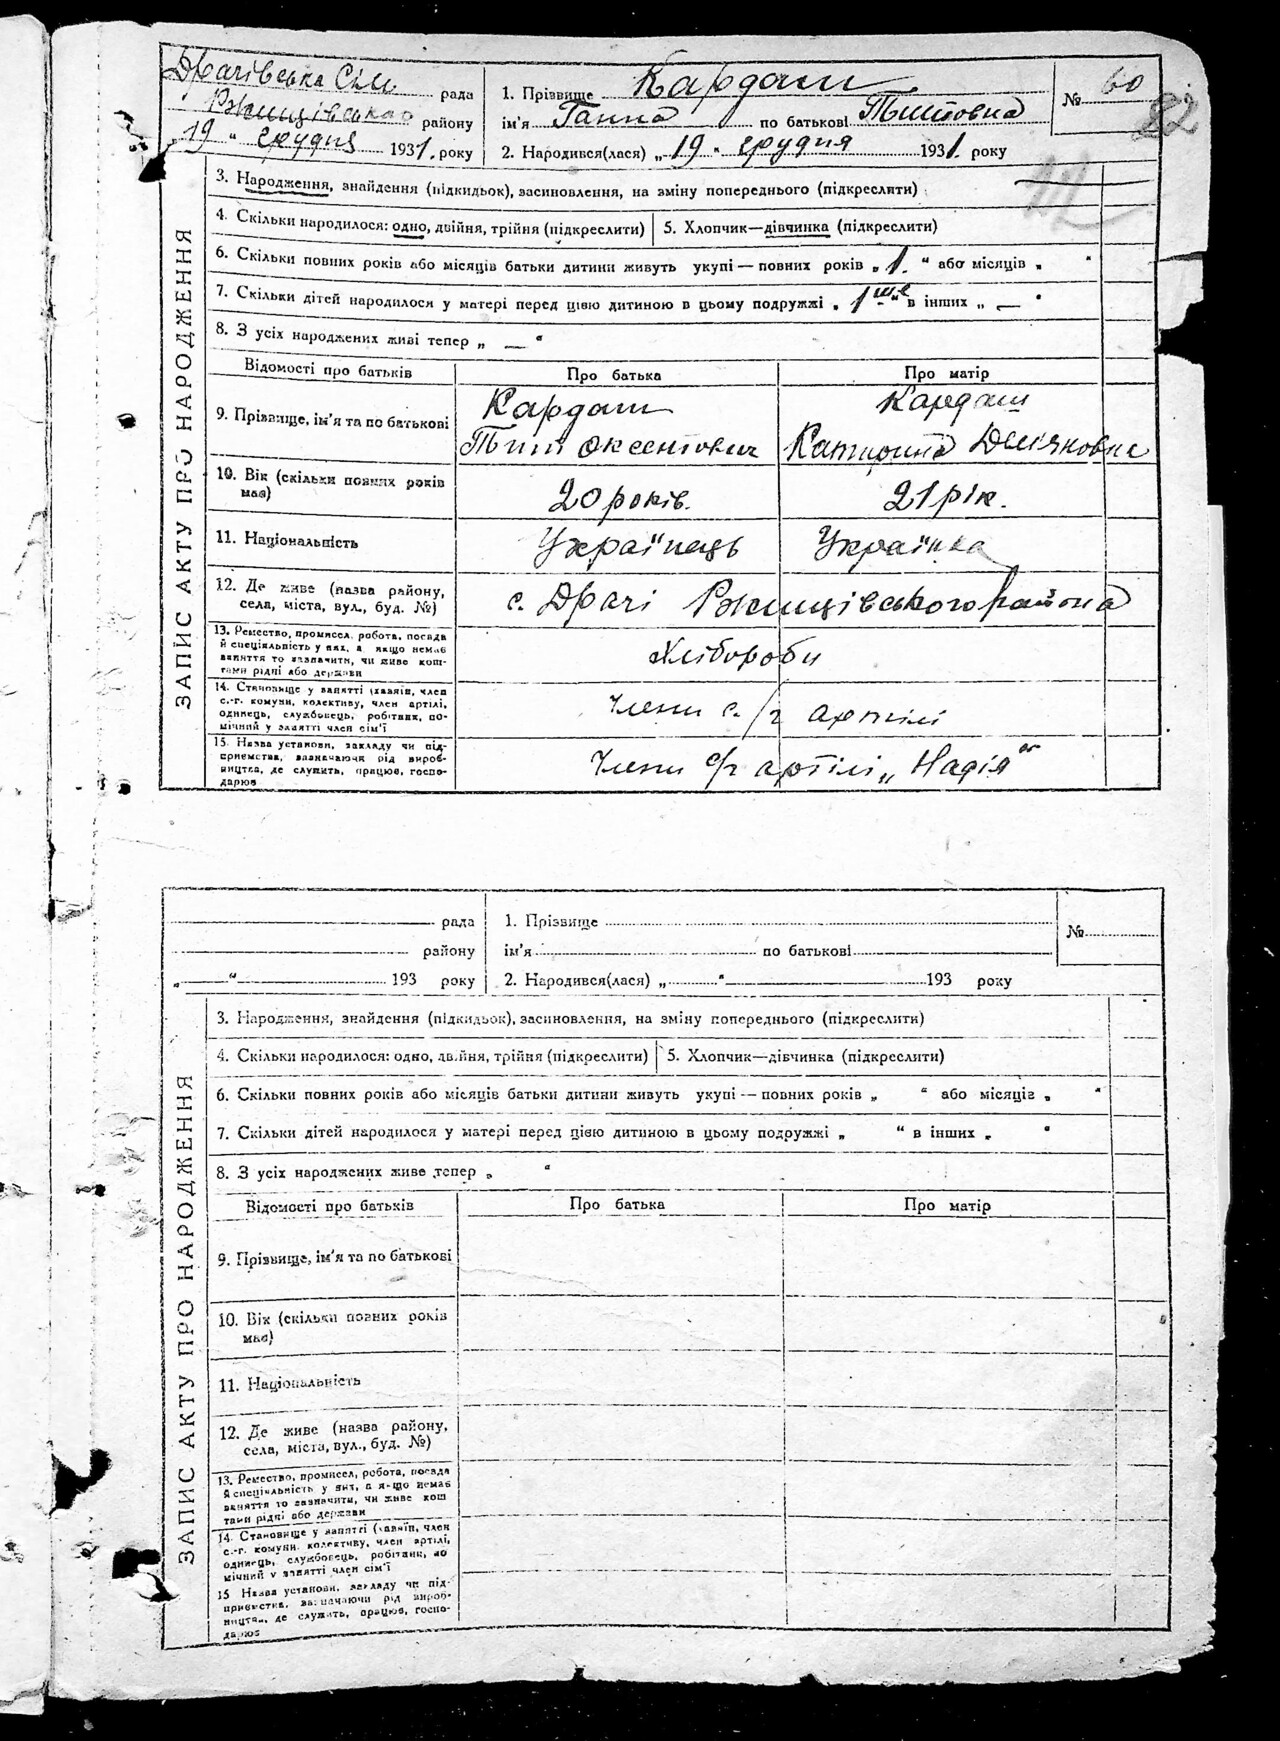 Драчівська Сіль рада
Ржищівського району
19 " грудня 1931. року
1. Прізвище Кардаш
ім'я Ганна по батькові Титовна
2. Народився(лася) „ 19 " грудня 1931. року
№ 60
82
ЗАПИС АКТУ ПРО НАРОДЖЕННЯ
3. Народження, знайдення (підкидьок), засиновлення, на зміну попереднього (підкреслити)
4. Скільки народилося: одно, двійня, трійня (підкреслити) 5. Хлопчик—дівчинка (підкреслити)
6. Скільки повних років або місяців батьки дитини живуть укупі — повних років „ 1. " або місяців „ "
7. Скільки дітей народилося у матері перед цією дитиною в цьому подружжі „ 1ше " в інших „ — "
8. З усіх народжених живі тепер „ — "
Відомості про батьків Про батька Про матір
9. Прізвище, ім'я та по батькові
Кардаш
Тит Оксентович
Кардаш
Катирина Демяновна
10. Вік (скільки повних років
має)
20 років. 21 рік.
11. Національність Українець Українка
12. Де живе (назва району,
села, міста, вул., буд. №)
с. Драчі Ржищівського района
13. Ремество, промисел, робота, посада
й спеціяльність у них, а якщо немає
заняття то зазначити, чи живе кош-
тами рідні або держави
Хлібороби
14. Становище у занятті (хазяїн, член
с.-г. комуни, колективу, член артілі,
одинець, службовець, робітник, по-
мічний у занятті член сім'ї
Члени с./г артілі
15. Назва установи, закладу чи під-
приємства, зазначаючи рід вироб-
ництва, де служить, працює, госпо-
дарює
Члени с/г артілі „Надія"
рада
району
„ " 193 року
1. Прізвище
ім'я по батькові
2. Народився(лася) „ " 193 року
№
ЗАПИС АКТУ ПРО НАРОДЖЕННЯ
3. Народження, знайдення (підкидьок), засиновлення, на зміну попереднього (підкреслити)
4. Скільки народилося: одно, двійня, трійня (підкреслити) 5. Хлопчик—дівчинка (підкреслити)
6. Скільки повних років або місяців батьки дитини живуть укупі — повних років „ " або місяців „ "
7. Скільки дітей народилося у матері перед цією дитиною в цьому подружжі „ " в інших „ "
8. З усіх народжених живе тепер „ "
Відомості про батьків Про батька Про матір
9. Прізвище, ім'я та по батькові
10. Вік (скільки повних років
має)
11. Національність
12. Де живе (назва району,
села, міста, вул., буд. №)
13. Ремество, промисел, робота, посада
й спеціяльність у них, а якщо немає
заняття то зазначити, чи живе кош
тами рідні або держави
14. Становище у занятті (хазяїн, член
с.-г. комуни, колективу, член артілі,
одинець, службовець, робітник, по
мічний у занятті член сім'ї
15 Назва установи, закладу чи під-
приємства, зазначаючи рід вироб-
ництва, де служить, працює, госпо-
дарює